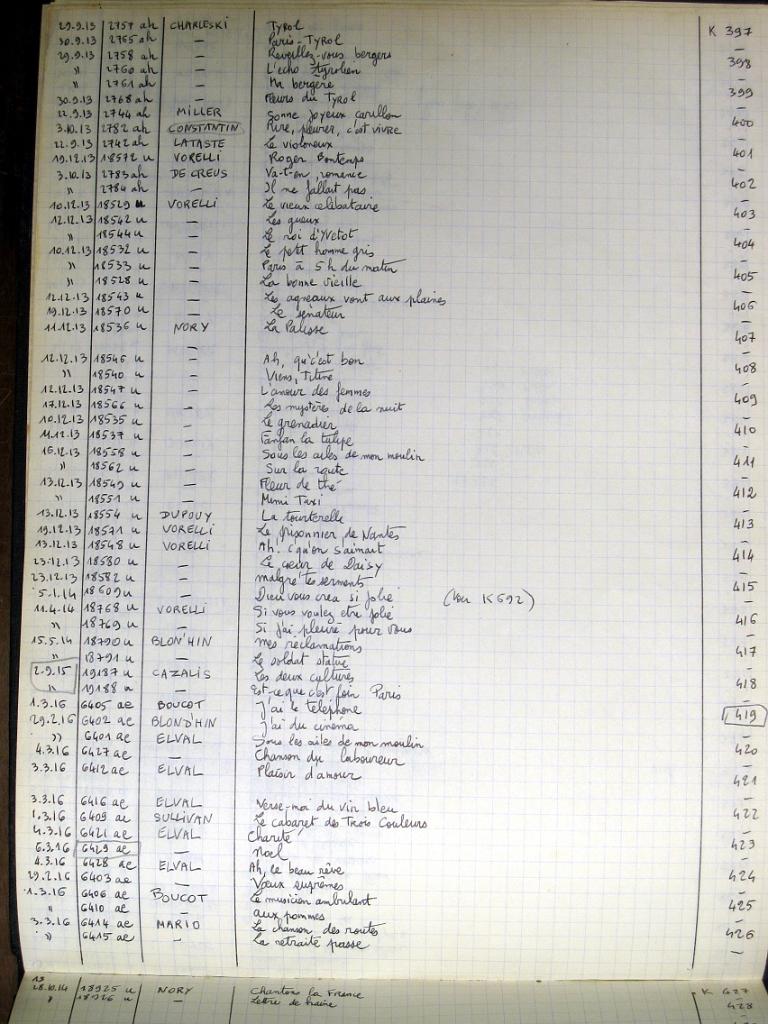 29.9.13 2757 ah CHARLESKI Tyrol K 397
30.9.13 2765 ah — Paris-Tyrol —
29.9.13 2758 ah — Reveillez-vous bergers 398
" 2760 ah — L'echo tyrolien —
" 2761 ah — Ma bergère 399
30.9.13 2768 ah — Fleurs du Tyrol —
22.9.13 2744 ah MILLER Sonne joyeux carillon 400
3.10.13 2782 ah CONSTANTIN Rire, pleurer, c'est vivre —
22.9.13 2742 ah LATASTE Le violoneux 401
19.12.13 18572 u VORELLI Roger Bontemps —
3.10.13 2783 ah DE CREUS Va-t-en, romance 402
" 2784 ah — Il ne fallait pas —
10.12.13 18529 u VORELLI Le vieux célibataire 403
12.12.13 18542 u — Les gueux —
" 18544 u — Le roi d'Yvetot 404
10.12.13 18532 u — Le petit homme gris —
" 18533 u — Paris à 5h du matin 405
" 18528 u — La bonne vieille —
12.12.13 18543 u — Les agneaux vont aux plaines 406
19.12.13 18570 u — Le sénateur —
11.12.13 18536 u NORY La Palisse 407
— —
12.12.13 18546 u — Ah, qu'c'est bon 408
" 18540 u — Viens, Titine —
12.12.13 18547 u — L'amour des femmes 409
17.12.13 18566 u — Les mystères de la nuit —
10.12.13 18535 u — Le grenadier 410
11.12.13 18537 u — Fanfan la tulipe —
16.12.13 18558 u — Sous les ailes de mon moulin 411
" 18562 u — Sur la route —
13.12.13 18549 u — Fleur de thé 412
" 18551 u — Mimi Taxi —
13.12.13 18554 u DUPOUY La tourterelle 413
19.12.13 18571 u VORELLI Le prisonnier de Nantes —
13.12.13 18548 u VORELLI Ah! c'qu'on s'aimait 414
23.12.13 18580 u — Le cœur de Daisy —
23.12.13 18582 u — malgré tes serments 415
5.1.14 18609 u — Dieu vous créa si jolie (voir K 692) —
11.4.14 18768 u VORELLI Si vous voulez etre jolie 416
" 18769 u — Si j'ai pleuré pour vous —
15.5.14 18790 u BLON'HIN Mes réclamations 417
" 18791 u — Le soldat statue —
2.9.15 19187 u CAZALIS Les deux cultures 418
" 19188 u — Est-ce que c'est loin Paris —
1.3.16 6405 ae BOUCOT J'ai le téléphone 419
29.2.16 6402 ae BLOND'HIN J'ai du cinéma —
" 6401 ae ELVAL Sous les ailes de mon moulin 420
4.3.16 6427 ae — Chanson du laboureur —
3.3.16 6412 ae ELVAL Plaisir d'amour 421
—
3.3.16 6416 ae ELVAL Verse-moi du vin bleu 422
1.3.16 6409 ae SULLIVAN Le cabaret des Trois Couleurs —
4.3.16 6421 ae ELVAL Charité 423
6.3.16 6429 ae — Noël —
4.3.16 6428 ae ELVAL Ah, le beau rêve 424
29.2.16 6403 ae — Vœux suprêmes —
1.3.16 6406 ae BOUCOT Le musicien ambulant 425
" 6410 ae — aux pommes —
3.3.16 6414 ae MARIO La chanson des routes 426
" 6415 ae — La retraite passe —
13
28.10.14 18925 u NORY Chantons la France K 627
" 18926 u — Lettre de haine 628